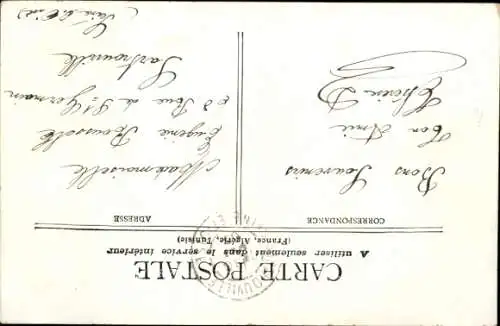 CARTE POSTALE
A utiliser seulement dans le service intérieur
(France, Algérie, Tunisie)
CORRESPONDANCE
ADRESSE
Bons Souvenirs
Ton Amie
Mademoiselle
Eugénie
Rue de St Germain
Sartrouville